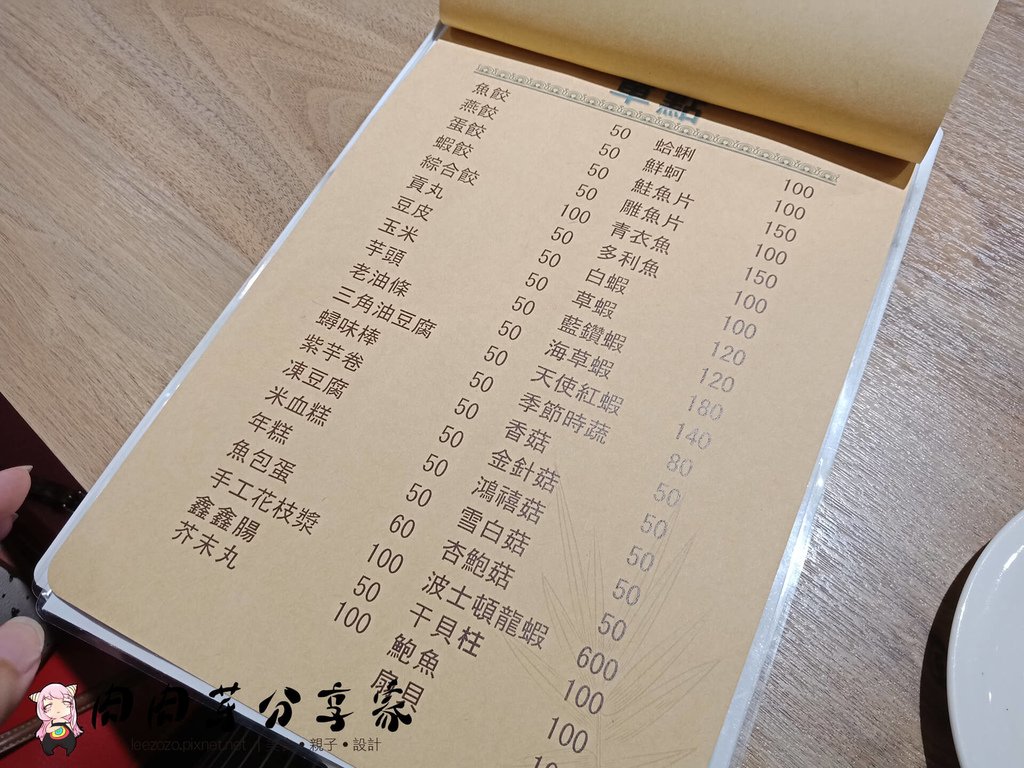 單點
魚餃 50 蛤蜊 100
燕餃 50 鮮蚵 100
蛋餃 50 鮭魚片 150
蝦餃 50 雕魚片 100
綜合餃 100 青衣魚 150
貢丸 50 多利魚 100
豆皮 50 白蝦 100
玉米 50 草蝦 120
芋頭 50 藍鑽蝦 120
老油條 50 海草蝦 180
三角油豆腐 50 天使紅蝦 140
蟳味棒 50 季節時蔬 80
紫芋卷 50 香菇 50
凍豆腐 50 金針菇 50
米血糕 50 鴻禧菇 50
年糕 50 雪白菇 50
魚包蛋 60 杏鮑菇 50
手工花枝漿 100 波士頓龍蝦 600
鑫鑫腸 50 干貝柱 100
芥末丸 100 鮑魚 100
扇貝
肉肉芽分享家
leezozo.pixnet.net | 美食•親子•設計